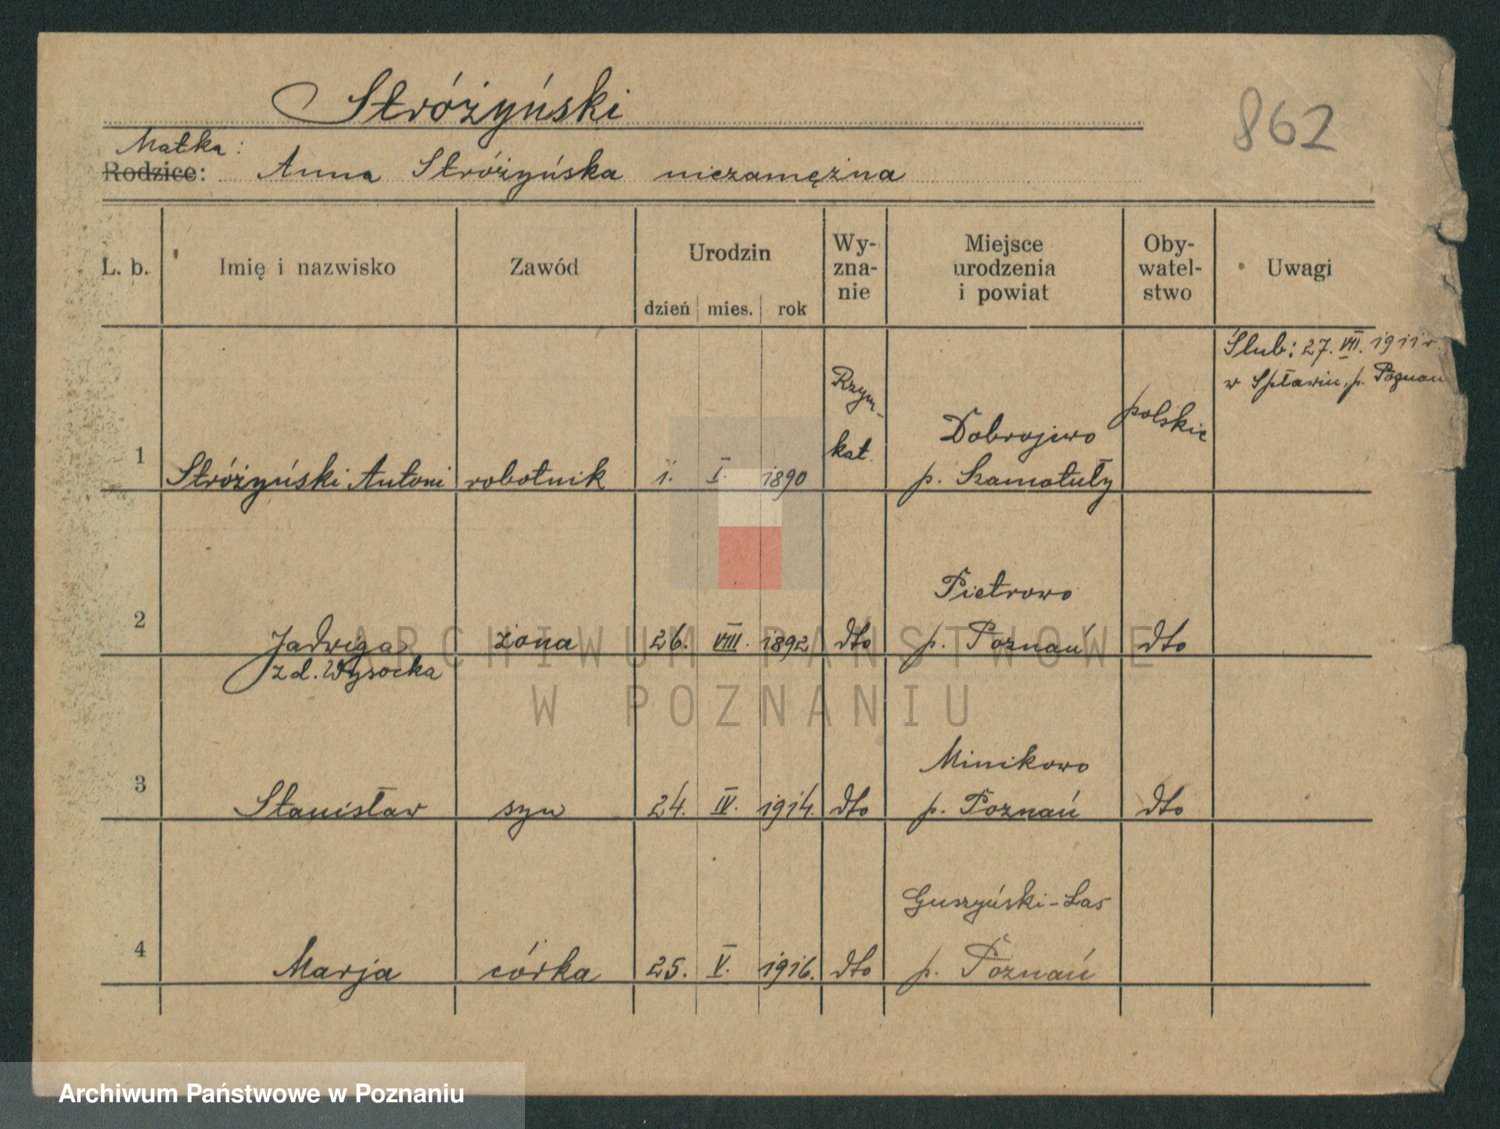 Stróżyński
862
Matka:
Rodzice: Anna Stróżyńska niezamężna
L. b. Imię i nazwisko Zawód Urodzin dzień mies. rok Wy-zna-nie Miejsce urodzenia i powiat Oby-watel-stwo Uwagi
Ślub: 27. VIII. 1911 r.
w Spławiu, p. Poznań
Rzym.-
kat.
Dobrojewo
polskie
1 Stróżyński Antoni robotnik 1. I. 1890 p. Szamotuły
Pietrowo
2 Jadwiga żona 26. VIII. 1892 dto p. Poznań dto
z d. Wysocka
Minikowo
3 Stanisław syn 24. IV. 1914. dto p. Poznań dto
4 Marja córka 25. V. 1916. dto p. Poznań
ARCHIWUM PAŃSTWOWE
W POZNANIU
Archiwum Państwowe w Poznaniu